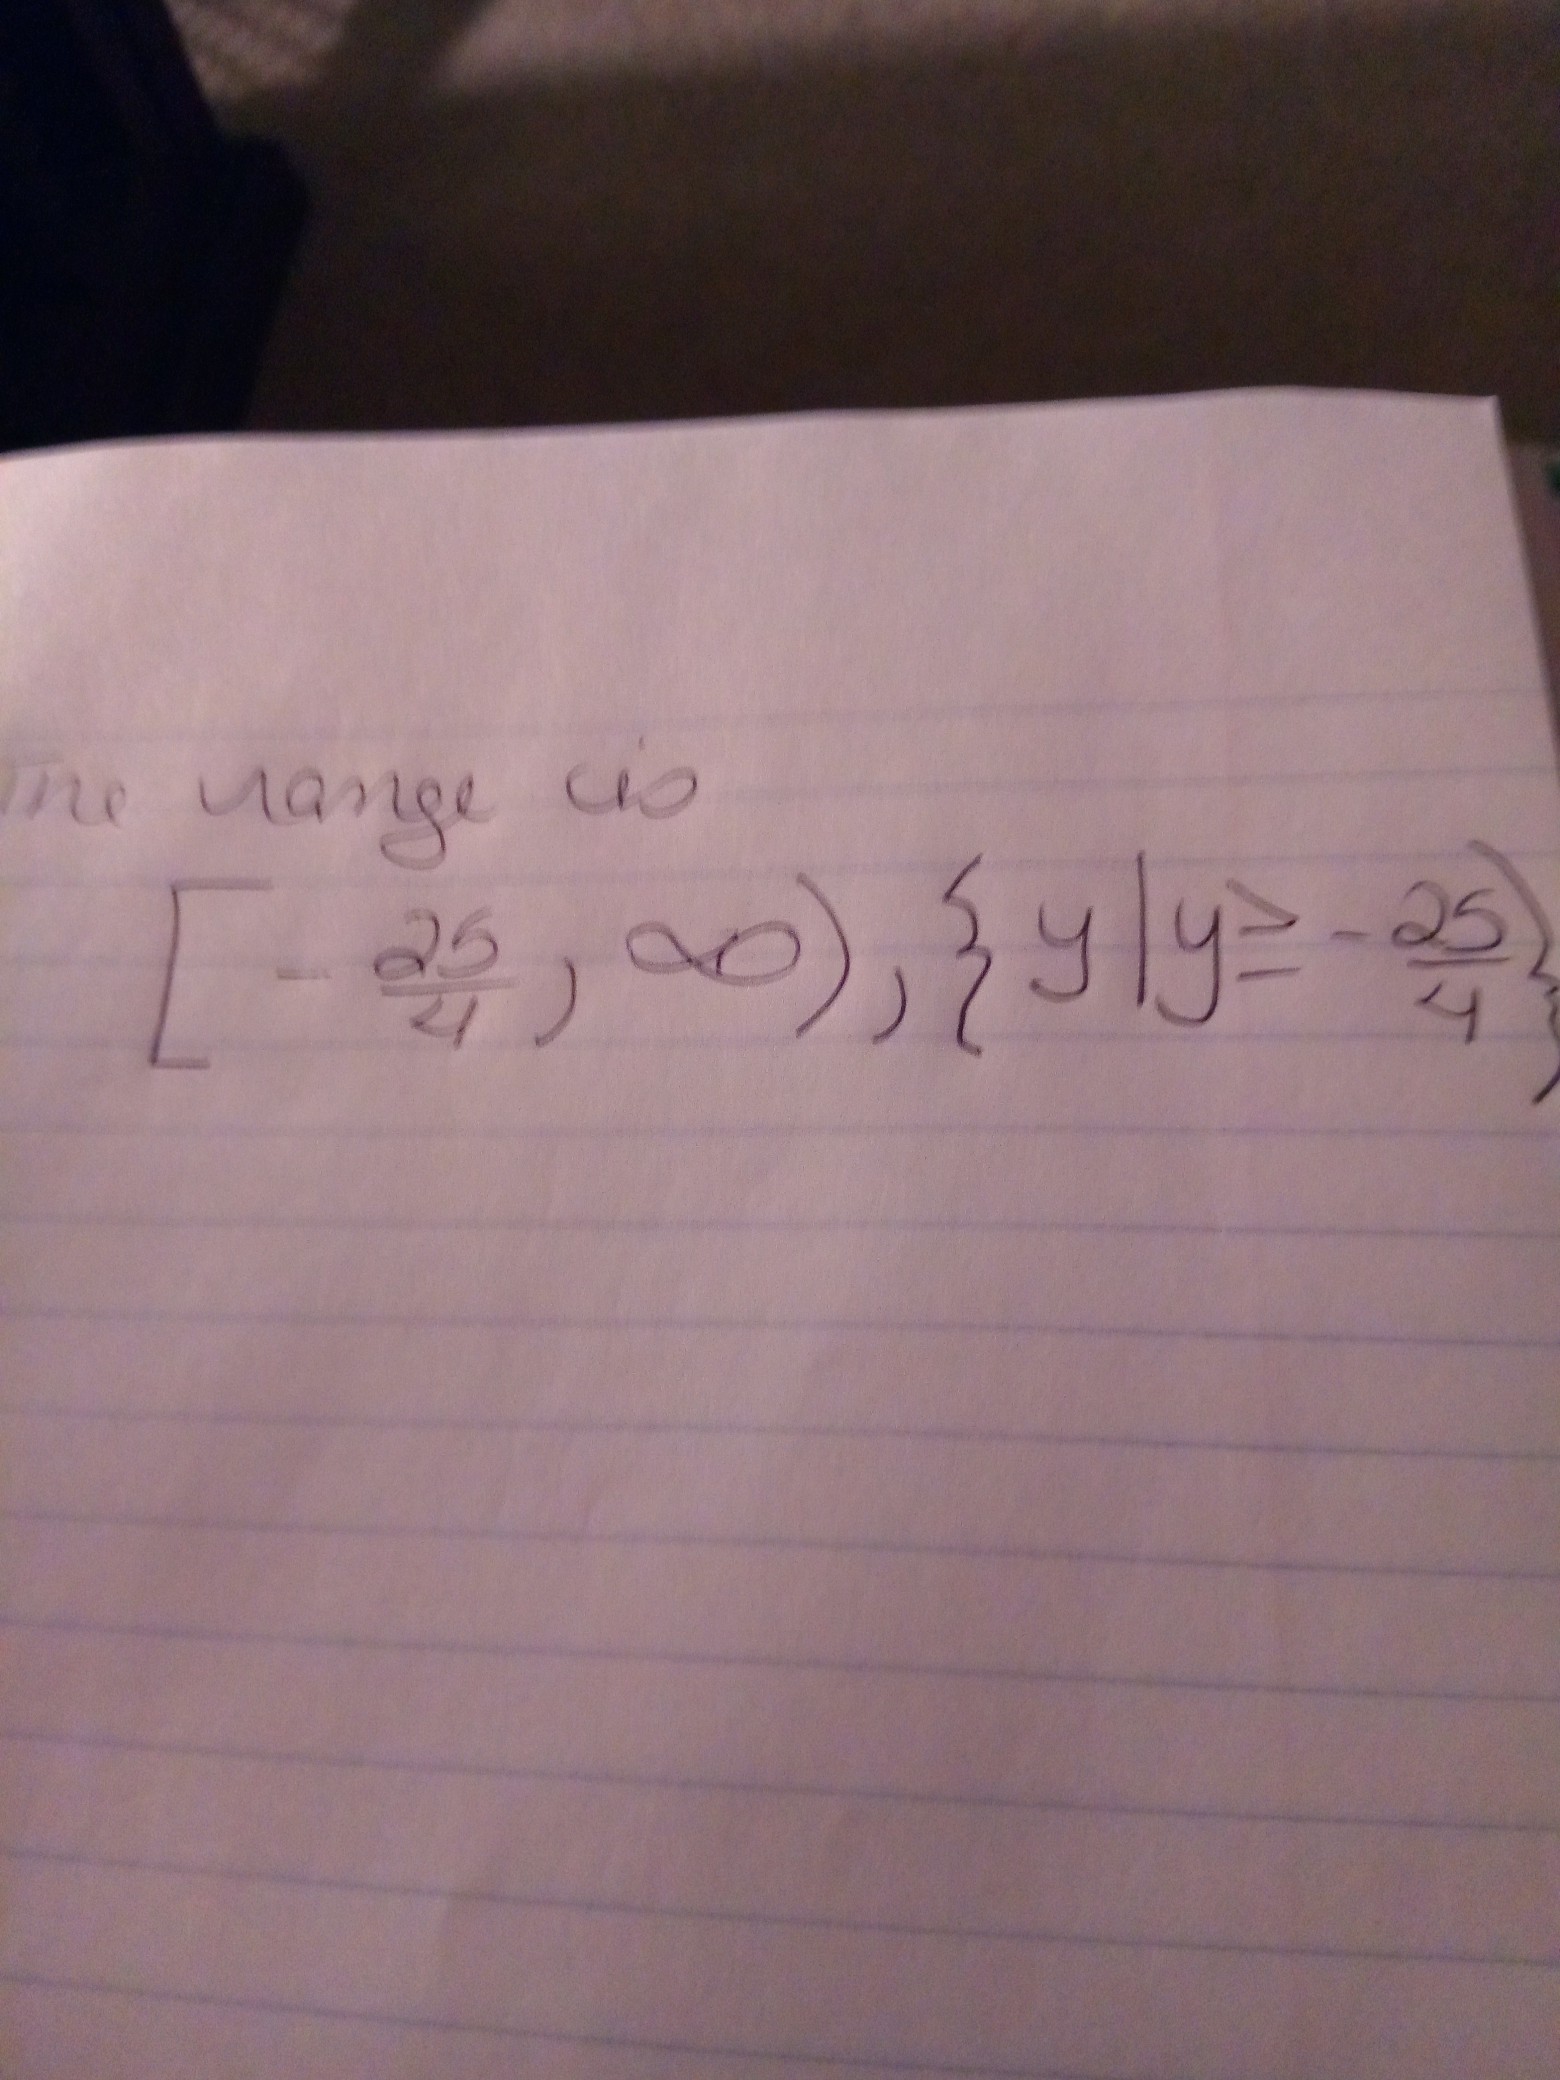 The range is
[-25/4, ∞), {y|y≥-25/4}